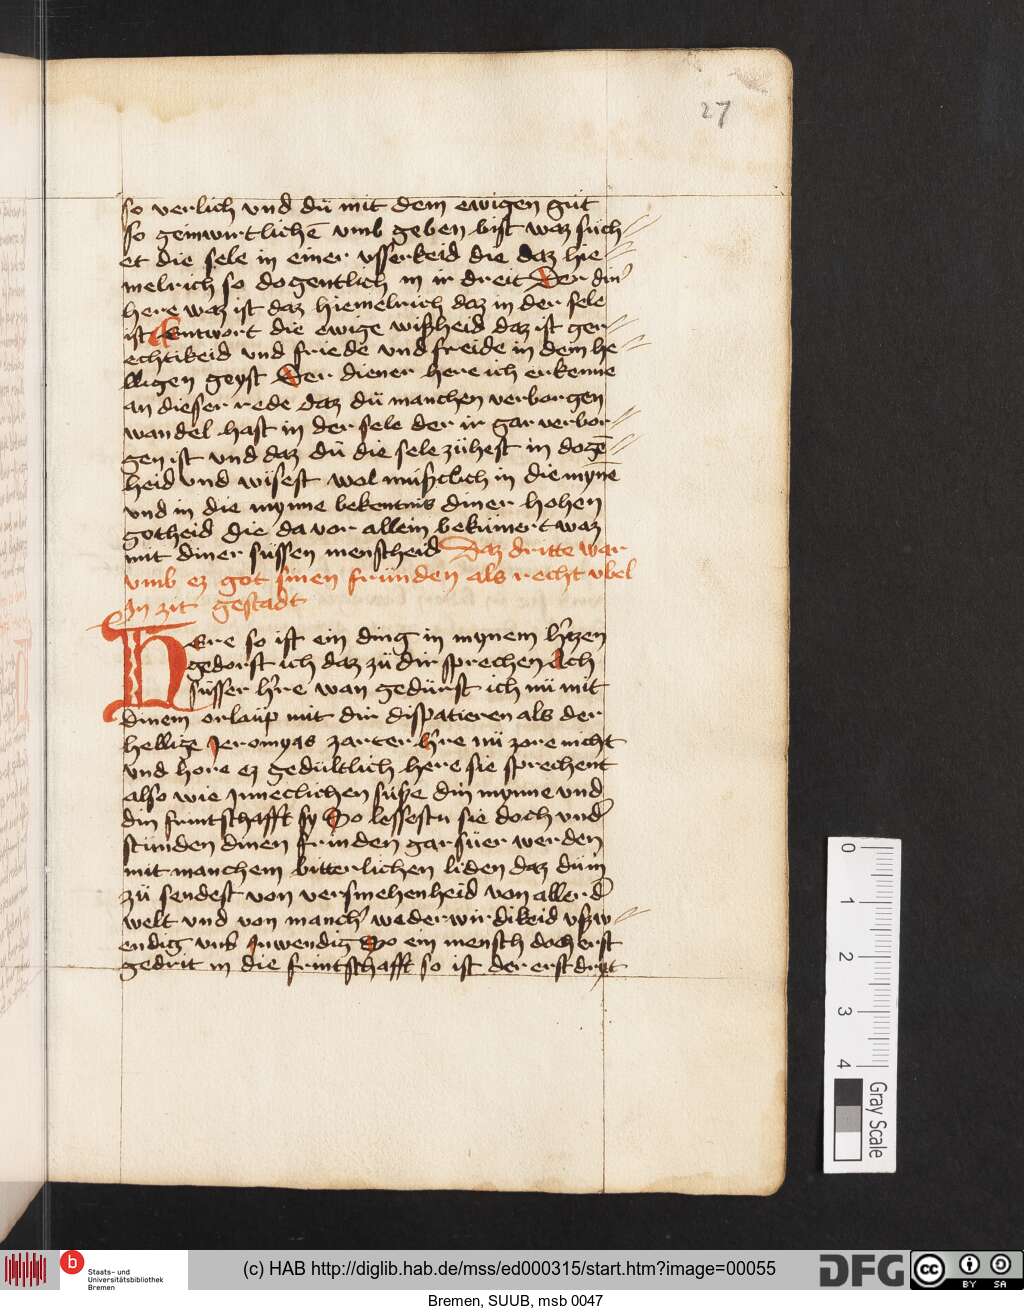 27
so verlich vnd dü mit dem ewigen güt
so geinwurtlichē vmb geben bist waz such
et die sele in einer vsserkeid die daz hie
melrich so dogentlich in ir dreit Der din'
here waz ist daz hiemelrich daz in der sele
ist Entwort die ewige wißheid daz ist ger
echtikeid vnd friede vnd freide in dem he
lligen geyst Der diener here ich erkenne
an dieser rede daz dü manchen verborgen
wandel hast in der sele der ir gar verbor
gen ist vnd daz dü die sele zühest in dogē
heid vnd wisest wol müßclich in die mynē
vnd in die mynne bekentnis diner hohen
gotheid die da vor allein bekümert waz
mit diner süssen menscheid Daz dritte war
vmb ez got sinen fründen als recht vbel
In zit gestadt
HEre so ist ein ding in mynem h'tzen
gedorst ich daz zü dir sprechen Ach
süsser h're wan gedürst ich nü mit
dinem orlaup mit dir dispatieren als der
hellige Jeromyas zarter h're nü zore nicht
vnd hore ez gedültlich here sie sprechent
also wie Inneclichen süße din mynne vnd
din frintschafft sy So lessestu sie doch vnd'
stünden dinen frinden gar süer werden
mit manchem bitterlichen liden daz düin
zü sendest von versmehenheid von aller d'
welt vnd von manch' wederwirdikeid vßw
endig vnd Inwendig So ein mensch doch erst
gedrit in die frintschafft so ist der erst dryt
0
1
2
3
4
Gray Scale
b
Staats- und
Universitätsbibliothek
Bremen
(c) HAB http://diglib.hab.de/mss/ed000315/start.htm?image=00055
DFG
cc
BY SA
Bremen, SUUB, msb 0047